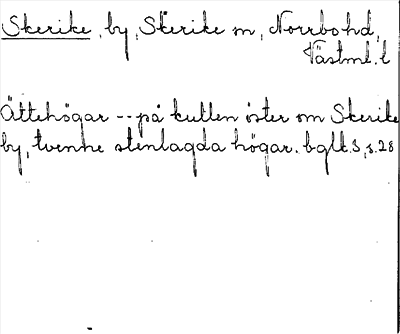 Skerike, by, Skerike sn, Norrbo hd,
Västml. l
Ättehögar -- på kullen öster om Skerike
by, tvenne stenlagda högar. bglt. S, s. 28